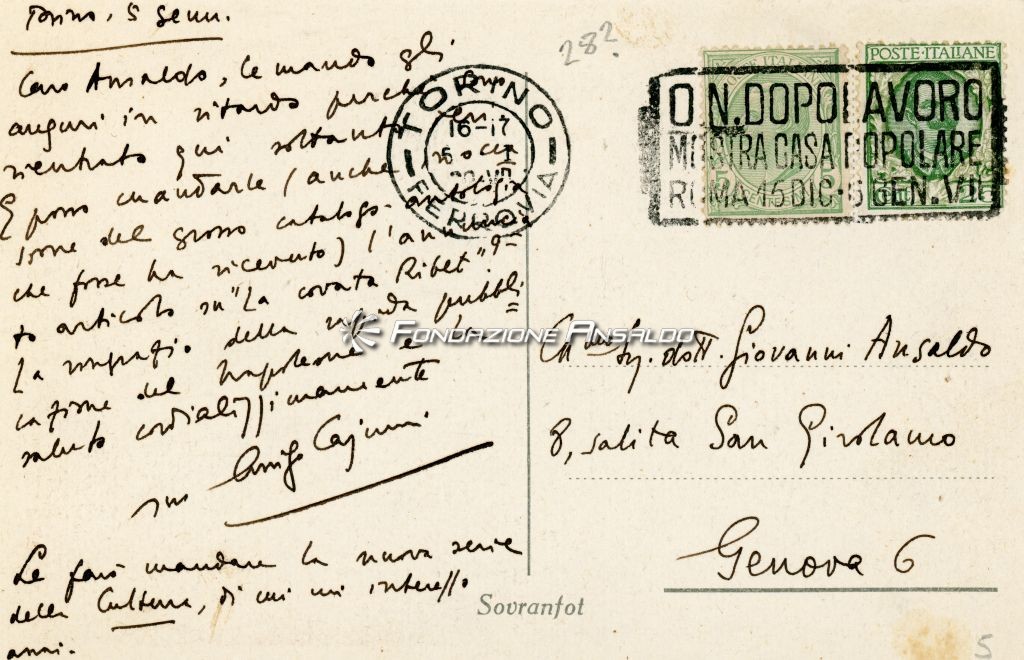 Torino, 5 genn.
Caro Ansaldo, le mando gli
auguri in ritardo perché sono
rientrato qui soltanto
E posso mandarle (anche
del grosso catalogo-antologia
che forse ha ricevuto) l'annuncia=
to articolo su "La covata Ribet"
La ringrazio della pubbli=
cazione del Napoleone e la
saluto cordialissimamente
suo Arrigo Cajumi
Le farò mandare la nuova serie
della Cultura, di cui mi interesso
anni.
282
TORINO
16-17
5
I
FERROVIA
POSTE·ITALIANE
O.N.DOPOLAVORO
MOSTRA CASA POPOLARE
ROMA 15 DIC·5 GEN. VII
FONDAZIONE ANSALDO
Sig. dott. Giovanni Ansaldo
8, salita San Girolamo
Genova 6
Sovranfot
5